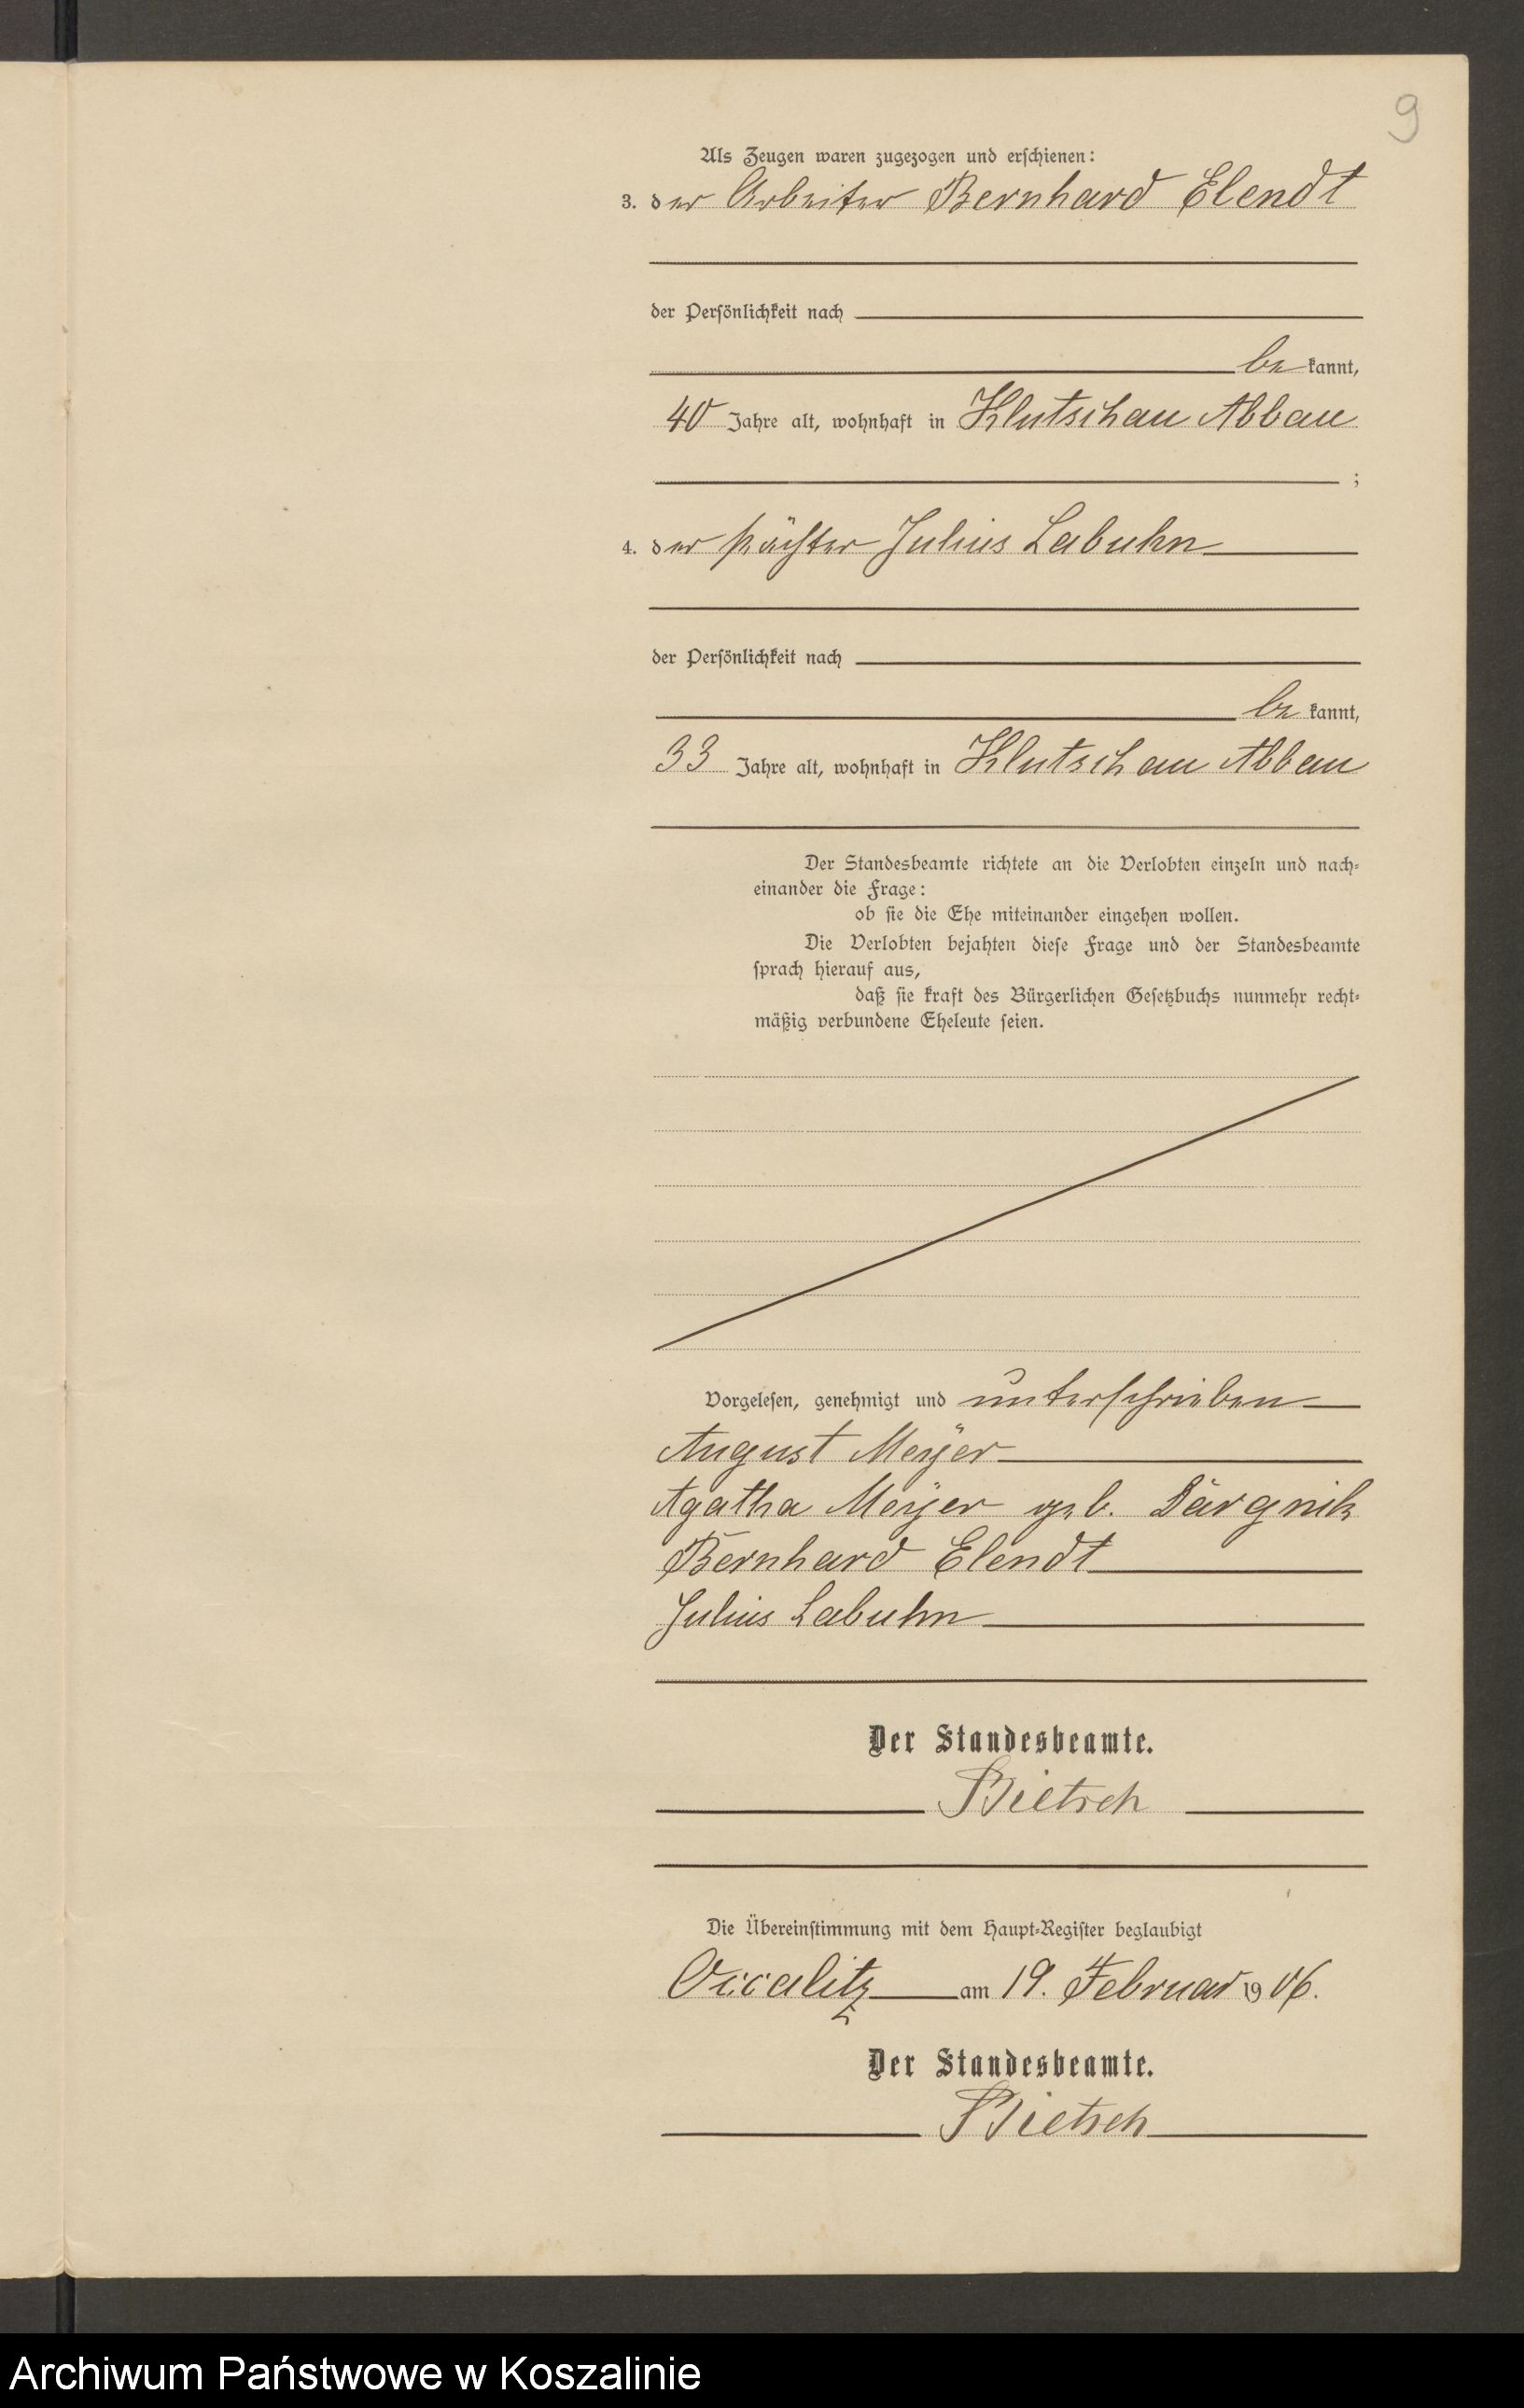 9
Als Zeugen waren zugezogen und erschienen:
3. der Arbeiter Bernhard Elendt
der Persönlichkeit nach
be kannt,
40 Jahre alt, wohnhaft in Klutschau Abbau
;
4. der Pächter Julius Labuhn
der Persönlichkeit nach
be kannt,
33 Jahre alt, wohnhaft in Klutschau Abbau
Der Standesbeamte richtete an die Verlobten einzeln und nach-
einander die Frage:
ob sie die Ehe miteinander eingehen wollen.
Die Verlobten bejahten diese Frage und der Standesbeamte
sprach hierauf aus,
daß sie kraft des Bürgerlichen Gesetzbuchs nunmehr recht-
mäßig verbundene Eheleute seien.
Vorgelesen, genehmigt und unterschrieben
August Meyer
Agatha Meyer geb. Dargnik
Bernhard Elendt
Julius Labuhn
Der Standesbeamte.
Bietsch
Die Übereinstimmung mit dem Haupt-Register beglaubigt
Occalitz am 19. Februar 1906.
Der Standesbeamte.
Bietsch
Archiwum Państwowe w Koszalinie